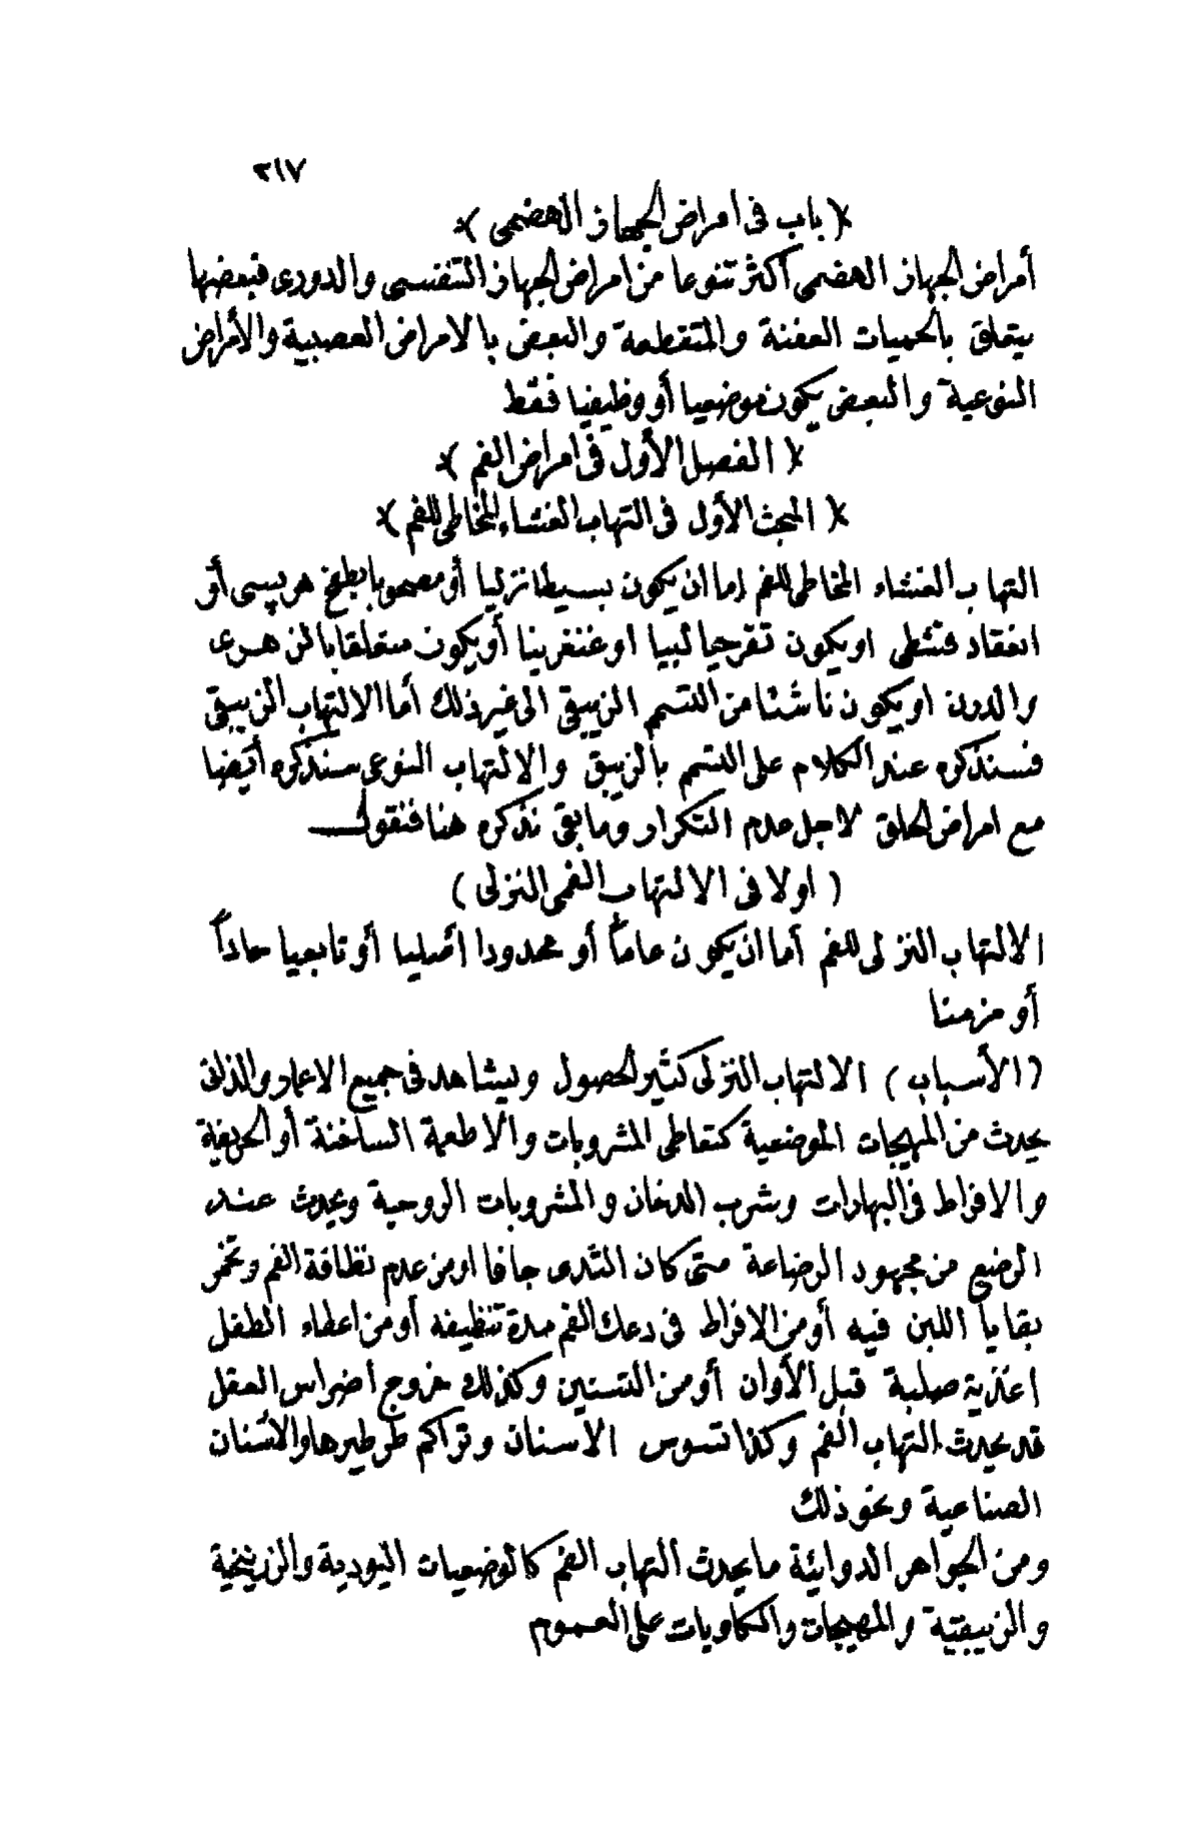 ٢١٧
﴿ باب فى امراض الجهاز الهضمى ﴾
أمراض الجهاز الهضمى أكثر تنوعا من امراض الجهاز التنفسى والدورى فبعضها
يتعلق بالحميات العفنة والمتقطعة والبعض بالامراض العصبية والأمراض
النوعية والبعض يكون موضعيا أو وظيفيا فقط
﴿ الفصل الأول فى امراض الفم ﴾
﴿ المبحث الأول فى التهاب الغشاء المخاطى للفم ﴾
التهاب الغشاء المخاطى للفم اما ان يكون بسيطا نزليا أو مصحوبا بطفح هربيسى أو
انعقاد فتثطى او يكون تقرحيا لبيا او غنغرينا أو يكون متعلقا بالزهرى
والدرن او يكون ناشئا من التسمم الزيبقى الى غير ذلك أما الالتهاب الزيبقى
فسنذكره عند الكلام على التسمم بالزيبق والالتهاب النوعى سنذكره أيضا
مع امراض الحلق لاجل عدم التكرار وما بقى نذكره هنا فنقول
( اولا فى الالتهاب الفمى النزلى )
الالتهاب النزلى للفم أما ان يكون عاماً أو محدودا أصليا أو تابعيا حاداً
أو مزمنا
( الأسباب ) الالتهاب النزلى كثير الحصول ويشاهد فى جميع الاعمار والذاتى
يحدث من المهيجات الموضعية كتعاطى المشروبات والاطعمة الساخنة أو الحريفة
والافراط فى البهارات وشرب الدخان والمشروبات الروحية ويحدث عند
الرضيع من مجهود الرضاعة متى كان الثدى جافا او من عدم نظافة الفم وتخمر
بقايا اللبن فيه أو من الافراط فى دعك الفم مدة تنظيفه أو من اعطاء الطفل
اغذية صلبة قبل الأوان أو من التسنين وكذلك خروج أضراس العقل
قد يحدث التهاب الفم وكذا تسوس الأسنان وتراكم طرطيرها والأسنان
الصناعية ونحو ذلك
ومن الجواهر الدوائية ما يحدث التهاب الفم كالوضعيات اليودية والزرنيخية
والزيبقية والمهيجات والكاويات على العموم